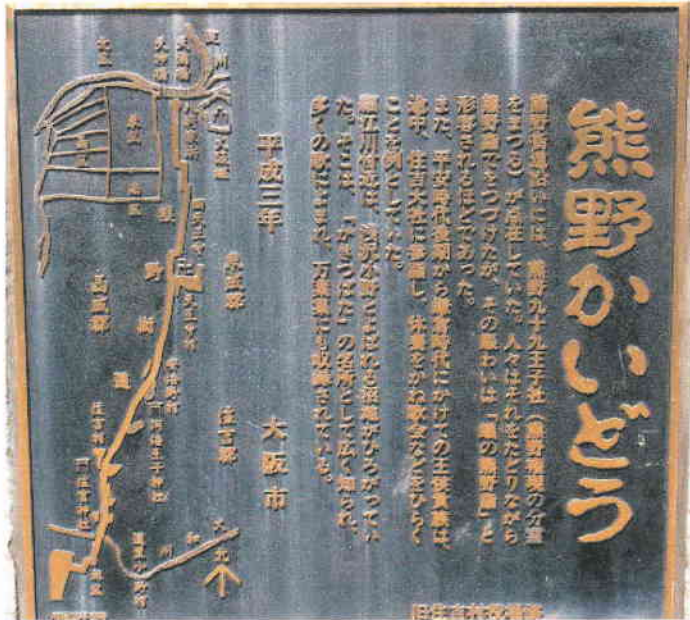 熊野かいどう
熊野街道沿いには、熊野九十九王子社(熊野権現の分霊
をまつる)が点在していた。人々はそれをたどりながら
熊野詣でをつづけたが、その賑わいは「蟻の熊野詣」と
形容されるほどであった。
また、平安時代後期から鎌倉時代にかけての王侯貴族は、
途中、住吉大社に参詣し、休養をかね歌会などをひらく
ことを例としていた。
細江川付近は、浅沢小野とよばれる湿地がひろがってい
た。そこは、「かきつばた」の名所として広く知られ、
多くの歌によまれ、万葉集にも収録されている。
平成三年
大阪市
東成郡
住吉郡
西成郡
熊野街道
天王寺村
阿倍王子神社
住吉村
住吉神社
大和川
北